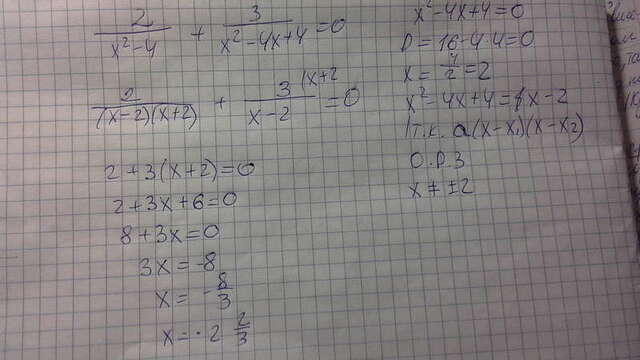 2/(x²-4) + 3/(x²-4x+4) = 0
2/((x-2)(x+2)) + 3/(x-2) |x+2 = 0
2+3(x+2)=0
2+3x+6=0
8+3x=0
3x=-8
x=-8/3
x=-2 2/3
x²-4x+4=0
D=16-4·4=0
x=4/2=2
x²-4x+4=x-2
т.к. a(x-x₁)(x-x₂)
О.Д.З
x≠±2